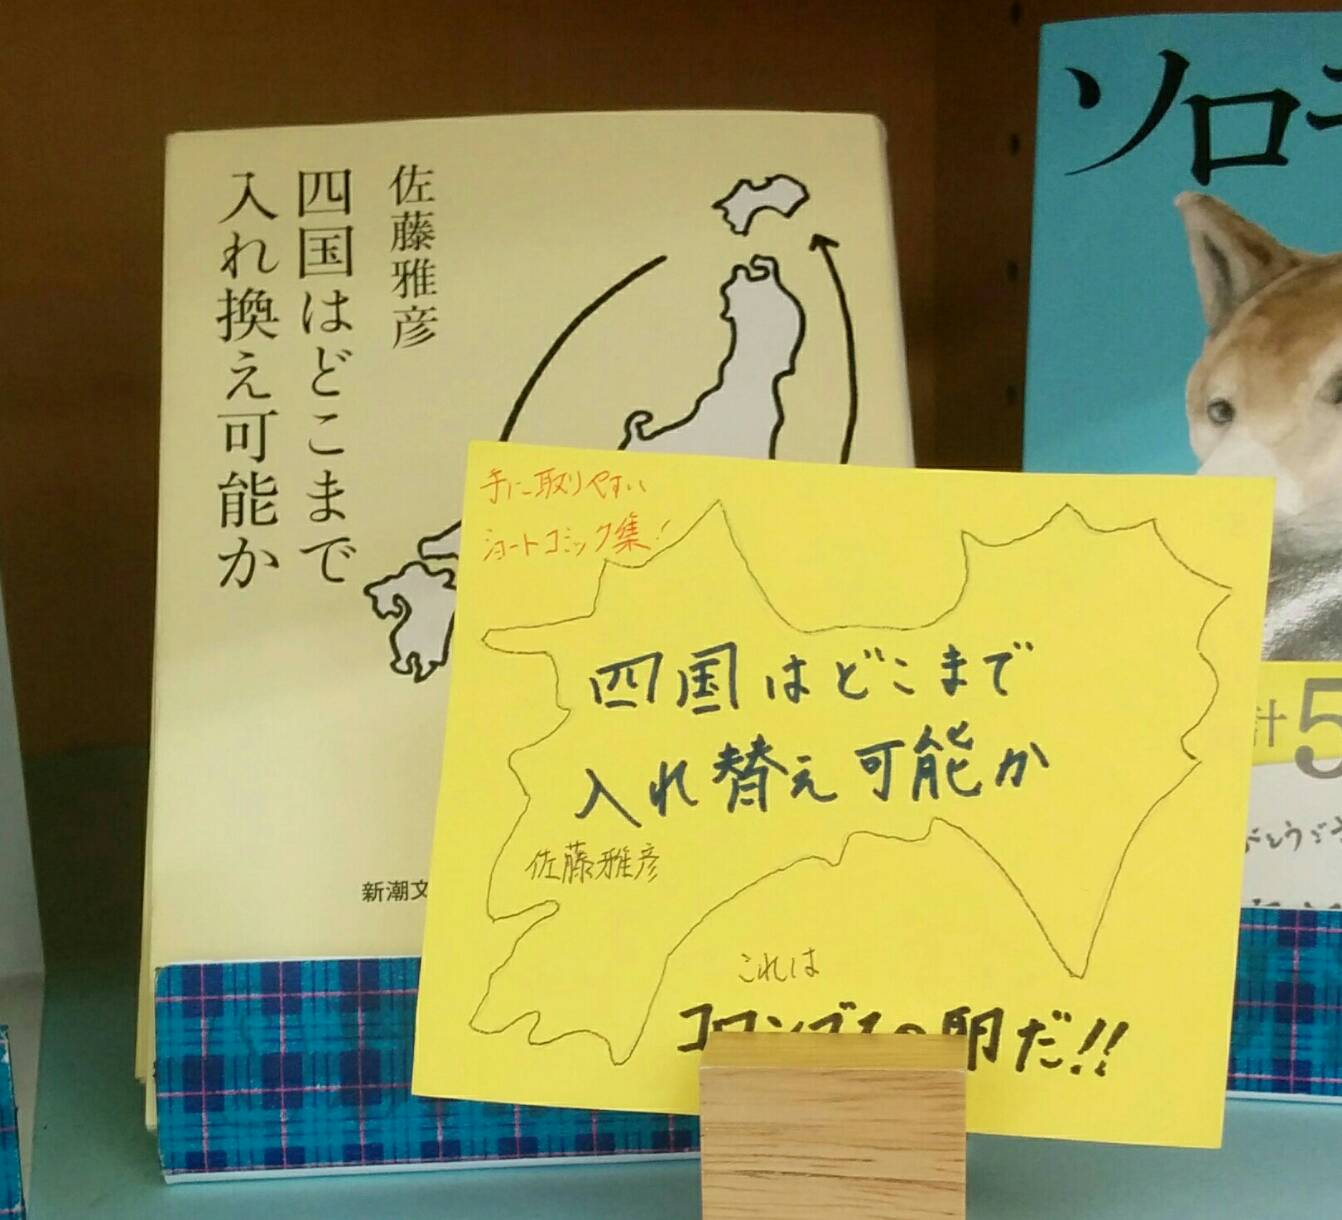 佐藤雅彦
四国はどこまで
入れ換え可能か
新潮文
手に取りやすい
ショートコミック集!
四国はどこまで
入れ替え可能か
佐藤雅彦
これは
コロンブスの卵だ!!
ソロモ
計5